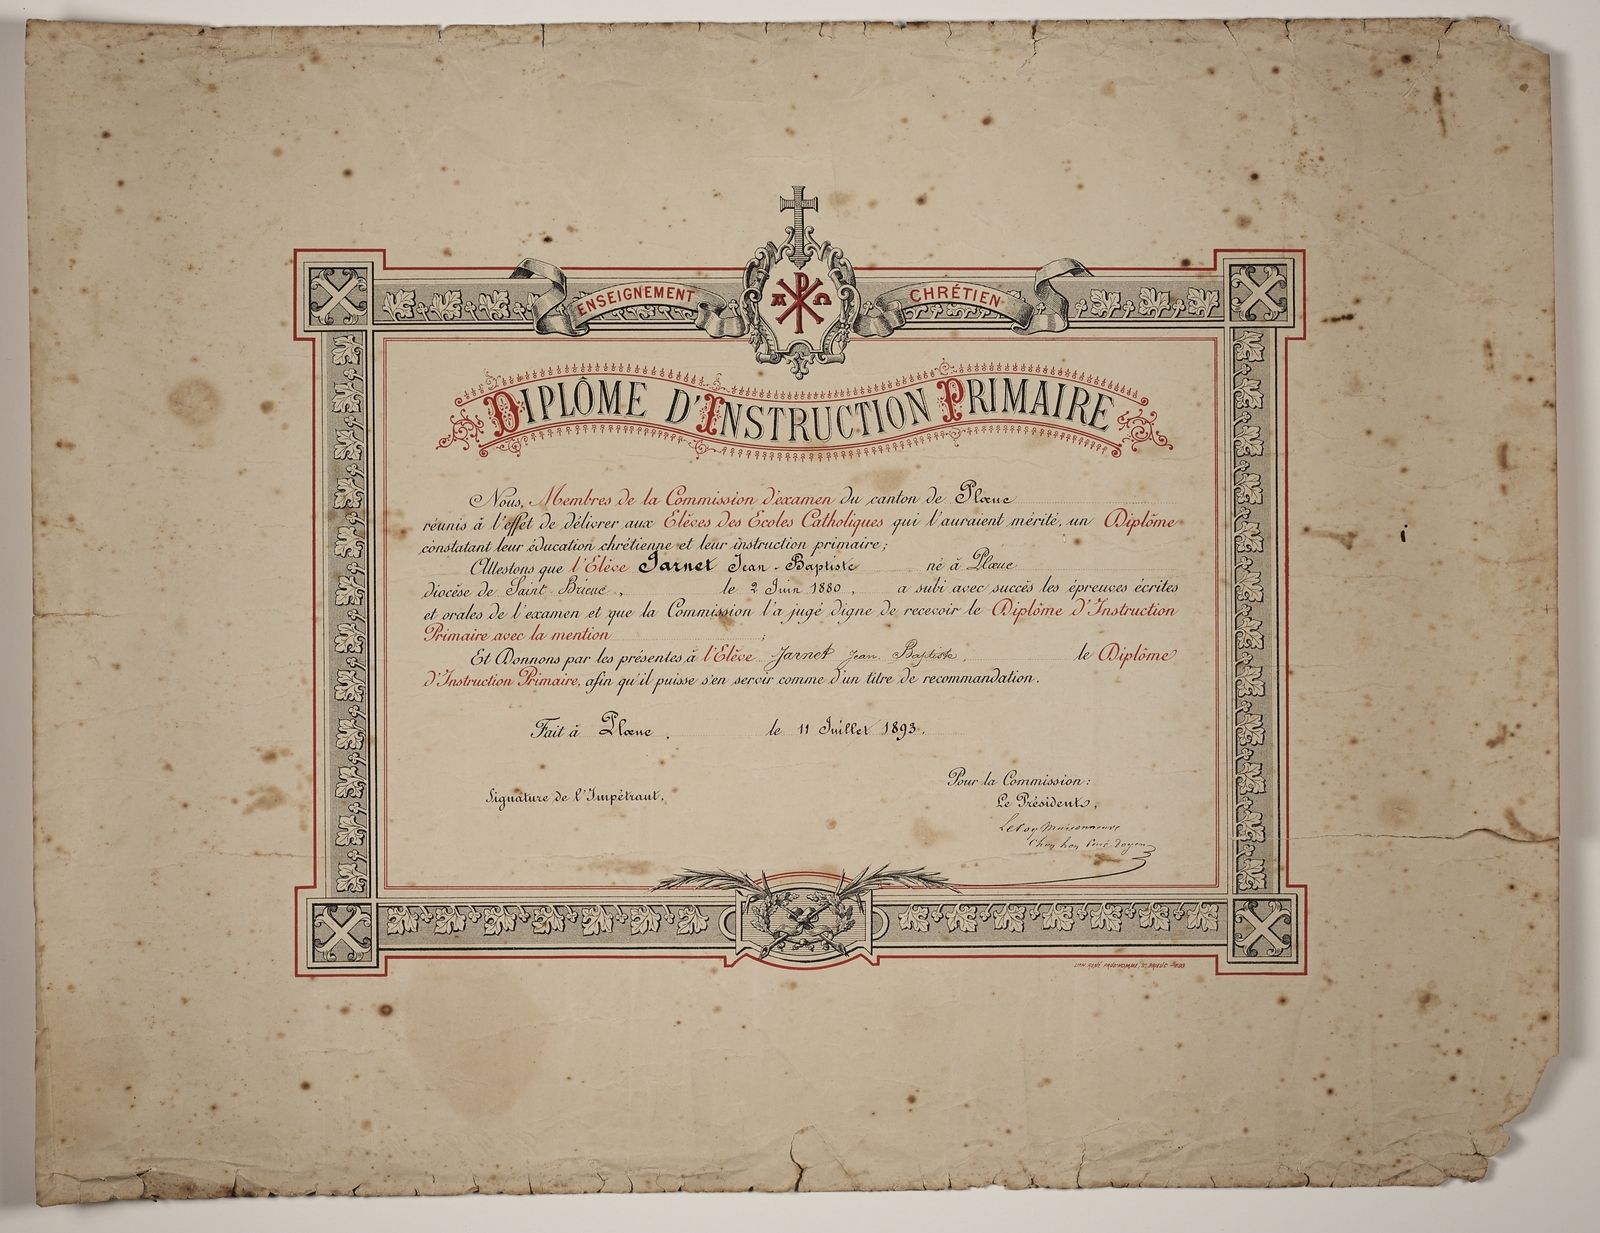 ENSEIGNEMENT CHRÉTIEN
A Ω
DIPLÔME D'INSTRUCTION PRIMAIRE
Nous, Membres de la Commission d'examen du canton de Plœuc
réunis à l'effet de délivrer aux Elèves des Ecoles Catholiques qui l'auraient mérité, un Diplôme
constatant leur éducation chrétienne et leur instruction primaire;
Attestons que l'Elève Jarnet Jean-Baptiste né à Plœuc
diocèse de Saint-Brieuc, le 2 Juin 1880, a subi avec succès les épreuves écrites
et orales de l'examen et que la Commission l'a jugé digne de recevoir le Diplôme d'Instruction
Primaire avec la mention ;
Et Donnons par les présentes à l'Elève Jarnet Jean-Baptiste, le Diplôme
d'Instruction Primaire, afin qu'il puisse s'en servir comme d'un titre de recommandation.
Fait à Plœuc, le 11 Juillet 1893.
Pour la Commission:
Signature de l'Impétrant,
Le Président,
Leroy Maisonneuve
Curé-Doyen
LITH. RENÉ PRUD'HOMME, ST BRIEUC